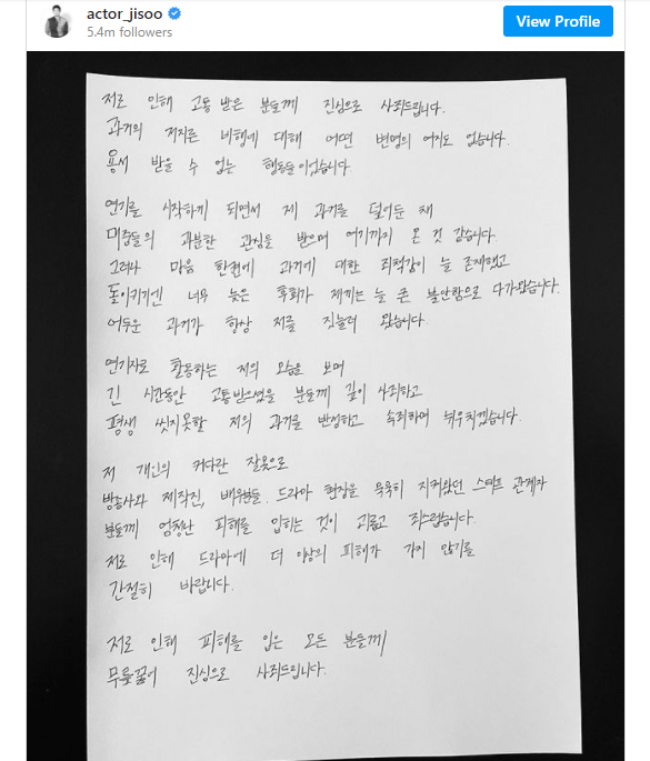 actor_jisoo
5.4m followers
View Profile
저로 인해 고통 받은 분들께 진심으로 사죄드립니다.
과거의 저지른 비행에 대해 어떤 변명의 여지도 없습니다.
용서 받을 수 없는 행동들이었습니다.
연기를 시작하게 되면서 제 과거를 덮어둔 채
대중들의 과분한 관심을 받으며 여기까지 온 것 같습니다.
그러나 마음 한켠에 과거에 대한 죄책감이 늘 존재했고
돌이키기엔 너무 늦은 후회가 제게는 늘 큰 불안함으로 다가왔습니다.
어두운 과거가 항상 저를 짓눌러 왔습니다.
연기자로 활동하는 저의 모습을 보며
긴 시간동안 고통받으셨을 분들께 깊이 사죄하고
평생 씻지못할 저의 과거를 반성하고 속죄하며 뉘우치겠습니다.
저 개인의 커다란 잘못으로
방송사와 제작진, 배우분들, 드라마 현장을 묵묵히 지켜왔던 스태프 관계자
분들께 엄청난 피해를 입히는 것이 괴롭고 죄스럽습니다.
저로 인해 드라마에 더 이상의 피해가 가지 않기를
간절히 바랍니다.
저로 인해 피해를 입은 모든 분들께
무릎꿇어 진심으로 사죄드립니다.